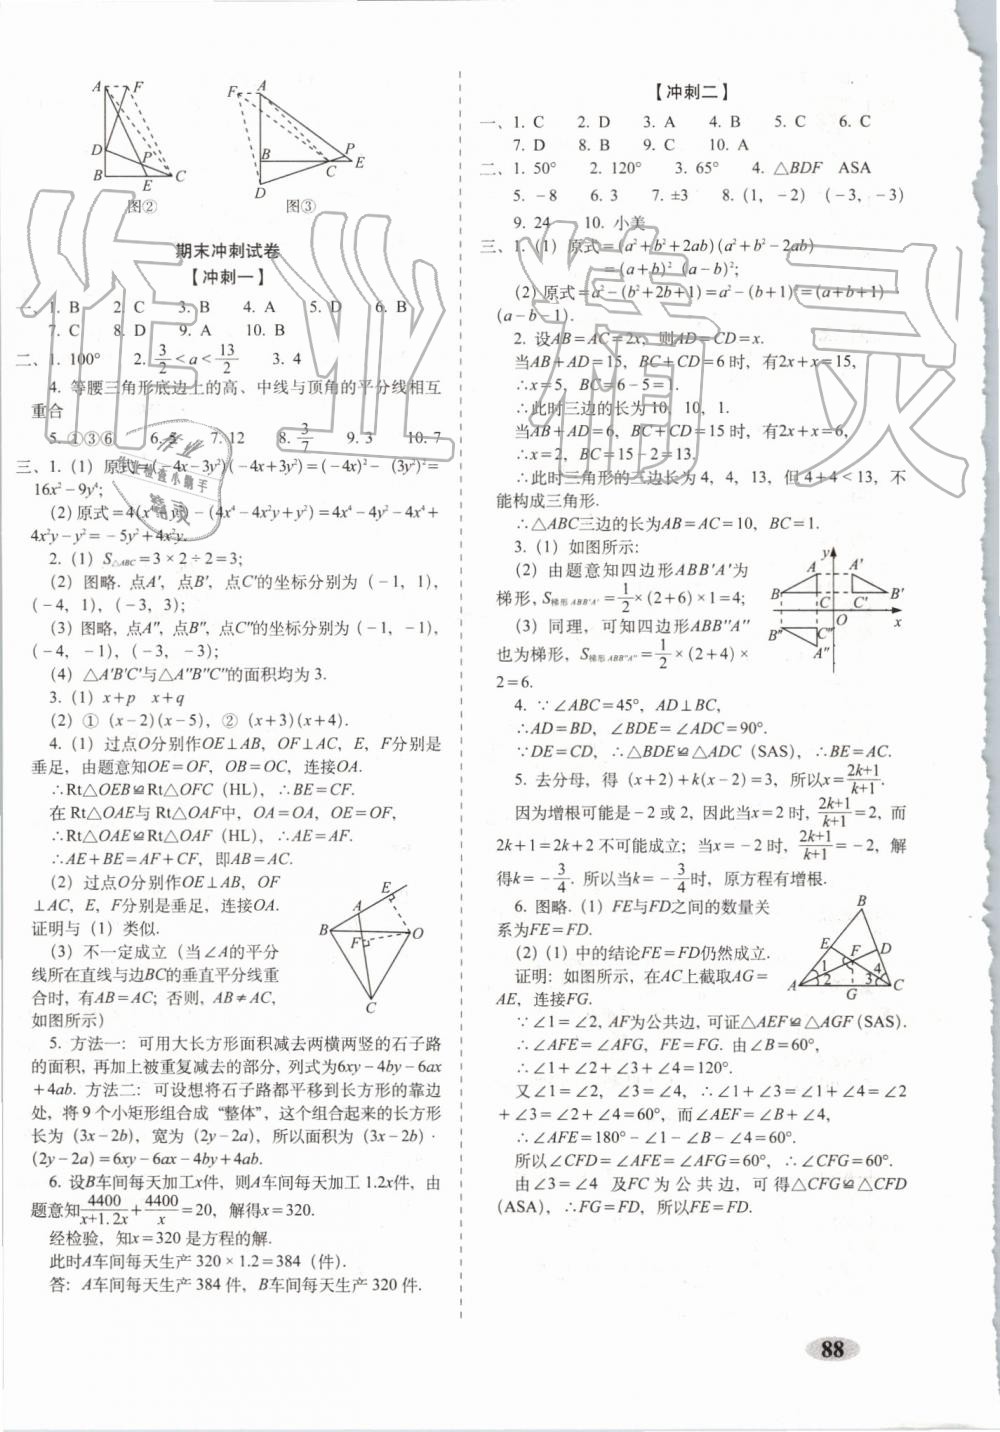 A F
D
P
B E C
图②
F A
B P
C E
D
图③
期末冲刺试卷
【冲刺一】
一、1. B 2. C 3. B 4. A 5. D 6. B
7. C 8. D 9. A 10. B
二、1. 100° 2. 3/2 < a < 13/2 3. 4
4. 等腰三角形底边上的高、中线与顶角的平分线相互
重合
5. ①③⑥ 6. 5 7. 12 8. 3/7 9. 3 10. 7
三、1. (1) 原式=(-4x-3y²)(-4x+3y²)=(-4x)²-(3y²)²=
16x²-9y⁴;
(2) 原式=4(x⁴-y²)-(4x⁴-4x²y+y²)=4x⁴-4y²-4x⁴+
4x²y-y²=-5y²+4x²y.
2. (1) S△ABC=3×2÷2=3;
(2) 图略. 点A′, 点B′, 点C′的坐标分别为 (-1, 1),
(-4, 1), (-3, 3);
(3) 图略, 点A″, 点B″, 点C″的坐标分别为 (-1, -1),
(-4, -1), (-3, -3);
(4) △A′B′C′与△A″B″C″的面积均为 3.
3. (1) x+p x+q
(2) ① (x-2)(x-5), ② (x+3)(x+4).
4. (1) 过点O分别作OE⊥AB, OF⊥AC, E, F分别是
垂足, 由题意知OE=OF, OB=OC, 连接OA.
∴Rt△OEB≌Rt△OFC (HL), ∴BE=CF.
在 Rt△OAE与 Rt△OAF中, OA=OA, OE=OF,
∴Rt△OAE≌Rt△OAF (HL), ∴AE=AF.
∴AE+BE=AF+CF, 即AB=AC.
(2) 过点O分别作OE⊥AB, OF
⊥AC, E, F分别是垂足, 连接OA.
证明与 (1) 类似.
(3) 不一定成立 (当∠A的平分
线所在直线与边BC的垂直平分线重
合时, 有AB=AC; 否则, AB≠AC,
如图所示)
E
A
B F O
C
5. 方法一: 可用大长方形面积减去两横两竖的石子路
的面积, 再加上被重复减去的部分, 列式为6xy-4by-6ax
+4ab. 方法二: 可设想将石子路都平移到长方形的靠边
处, 将 9 个小矩形组合成“整体”, 这个组合起来的长方形
长为 (3x-2b), 宽为 (2y-2a), 所以面积为 (3x-2b)·
(2y-2a)=6xy-6ax-4by+4ab.
6. 设B车间每天加工x件, 则A车间每天加工 1.2x件, 由
题意知4400/(x+1.2x)+4400/x=20, 解得x=320.
经检验, 知x=320 是方程的解.
此时A车间每天生产 320×1.2=384 (件).
答: A车间每天生产 384 件, B车间每天生产 320 件.
【冲刺二】
一、1. C 2. D 3. A 4. B 5. C 6. C
7. D 8. B 9. C 10. A
二、1. 50° 2. 120° 3. 65° 4. △BDF ASA
5. -8 6. 3 7. ±3 8. (1, -2) (-3, -3)
9. 24 10. 小美
三、1. (1) 原式=(a²+b²+2ab)(a²+b²-2ab)
=(a+b)² (a-b)²;
(2) 原式=a²-(b²+2b+1)=a²-(b+1)²=(a+b+1)
(a-b-1).
2. 设AB=AC=2x, 则AD=CD=x.
当AB+AD=15, BC+CD=6 时, 有2x+x=15,
∴x=5, BC=6-5=1.
∴此时三边的长为 10, 10, 1.
当AB+AD=6, BC+CD=15 时, 有2x+x=6,
∴x=2, BC=15-2=13.
∴此时三角形的三边长为 4, 4, 13, 但 4+4<13, 不
能构成三角形.
∴△ABC三边的长为AB=AC=10, BC=1.
3. (1) 如图所示:
(2) 由题意知四边形ABB′A′为
梯形, S梯形ABB′A′=1/2×(2+6)×1=4;
(3) 同理, 可知四边形ABB″A″
也为梯形, S梯形ABB″A″=1/2×(2+4)×
2=6.
y
A A′
B C C′ B′
O x
B″ C″
A″
4. ∵∠ABC=45°, AD⊥BC,
∴AD=BD, ∠BDE=∠ADC=90°.
∵DE=CD, ∴△BDE≌△ADC (SAS), ∴BE=AC.
5. 去分母, 得 (x+2)+k(x-2)=3, 所以x=(2k+1)/(k+1).
因为增根可能是-2 或 2, 因此当x=2 时, (2k+1)/(k+1)=2, 而
2k+1=2k+2 不可能成立; 当x=-2 时, (2k+1)/(k+1)=-2, 解
得k=-3/4. 所以当k=-3/4时, 原方程有增根.
6. 图略. (1) FE与FD之间的数量关
系为FE=FD.
(2) (1) 中的结论FE=FD仍然成立.
证明: 如图所示, 在AC上截取AG=
AE, 连接FG.
B
E F D
1 2 3 4
A G C
∵∠1=∠2, AF为公共边, 可证△AEF≌△AGF (SAS).
∴∠AFE=∠AFG, FE=FG. 由∠B=60°,
∴∠1+∠2+∠3+∠4=120°.
又∠1=∠2, ∠3=∠4, ∴∠1+∠3=∠1+∠4=∠2
+∠3=∠2+∠4=60°, 而∠AEF=∠B+∠4,
∴∠AFE=180°-∠1-∠B-∠4=60°.
所以∠CFD=∠AFE=∠AFG=60°, ∴∠CFG=60°.
由∠3=∠4 及FC为公共边, 可得△CFG≌△CFD
(ASA), ∴FG=FD, 所以FE=FD.
88
作业精灵
作业
检查小助手
精灵